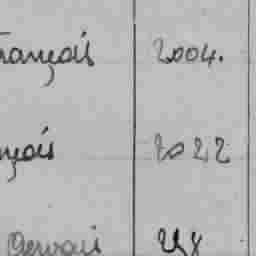 rançois 2004.
nçois 2022
Gervais